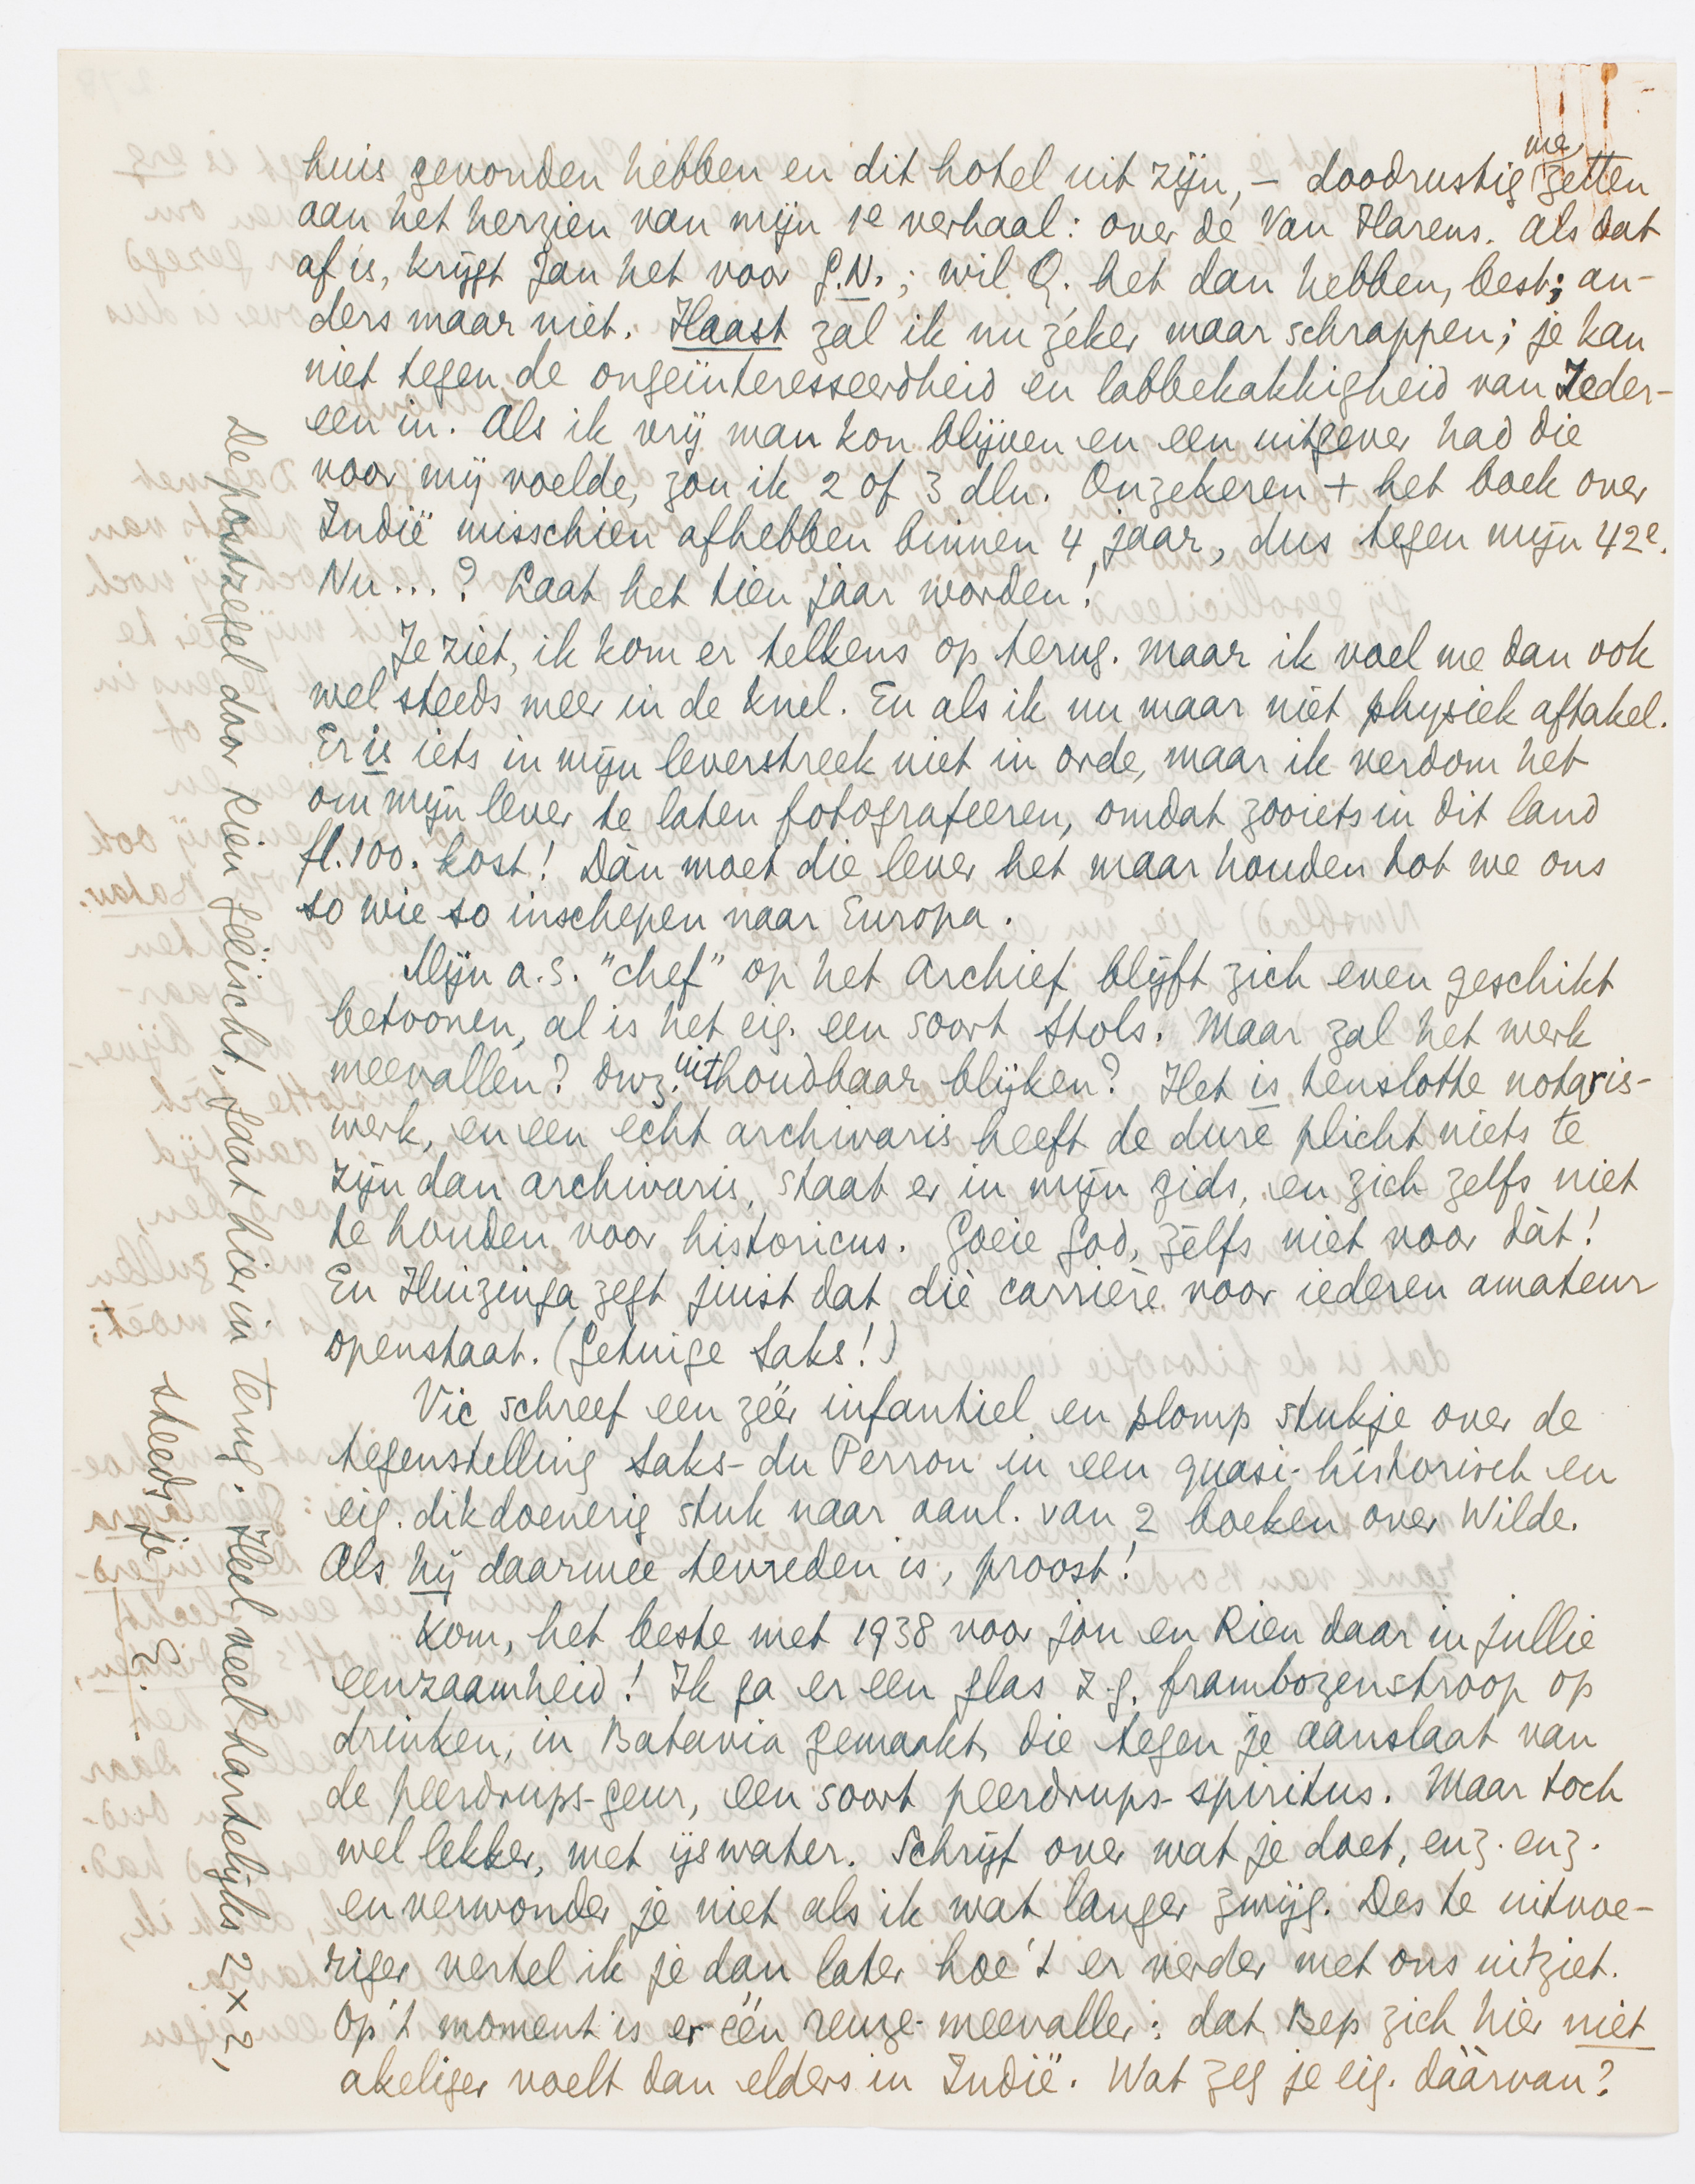 huis gevonden hebben en dit hotel uit zijn, – doodrustig me zetten
aan het herzien van mijn 1e verhaal: over de Van Harens. Als dat
af is, krijgt Jan het voor G.N.; wil Q. het dan hebben, best; an-
ders maar niet. Haast zal ik nu zeker maar schrappen; je kan
niet tegen de ongeïnteresseerdheid en labbekakkigheid van Ieder-
een in. Als ik vrij man kon blijven en een uitgever had die
voor mij voelde, zou ik 2 of 3 dln. Onzekeren + het boek over
Indië misschien afhebben binnen 4 jaar, dus tegen mijn 42e.
Nu...? Laat het tien jaar worden!
Je ziet, ik kom er telkens op terug. Maar ik voel me dan ook
wel steeds meer in de knel. En als ik nu maar niet physiek aftakel.
Er is iets in mijn leverstreek niet in orde, maar ik verdom het
om mijn lever te laten fotografeeren, omdat zooiets in dit land
fl. 100. kost! Dàn moet die lever het maar houden tot we ons
so wie so inschepen naar Europa.
Mijn a.s. "chef" op het Archief blijft zich even geschikt
betoonen, al is het eig. een soort Stols. Maar zal het werk
meevallen? Dwz. uithoudbaar blijken? Het is tenslotte notaris-
werk, en een echt archivaris heeft de dure plicht niets te
zijn dan archivaris, staat er in mijn gids, en zich zelfs niet
te houden voor historicus. Goeie God, zèlfs niet voor dàt!
En Huizinga zegt juist dat die carrière voor iederen amateur
openstaat. (Getuige Saks!)
Vic schreef een zéér infantiel en plomp stukje over de
tegenstelling Saks-du Perron in een quasi-historisch en
eig. dikdoenerig stuk naar aanl. van 2 boeken over Wilde.
Als hij daarmee tevreden is, proost!
Kom, het beste met 1938 voor jou en Rien daar in jullie
eenzaamheid! Ik ga er een glas z.g. frambozenstroop op
drinken, in Batavia gemaakt, die tegen je aanslaat van
de peerdrups-geur, een soort peerdrups-spiritus. Maar toch
wel lekker, met ijswater. Schrijf over wat je doet, enz. enz.
en verwonder je niet als ik wat langer zwijg. Des te uitvoe-
riger vertel ik je dan later hoe 't er verder met ons uitziet.
Op 't moment is er één reuze-meevaller: dat Bep zich hier niet
akeliger voelt dan elders in Indië. Wat zeg je eig. dáárvan?
De postzegel door Rien geëischt, gaat hierin terug. Heel veel hartelijks 2 x 2,
steeds je
E.